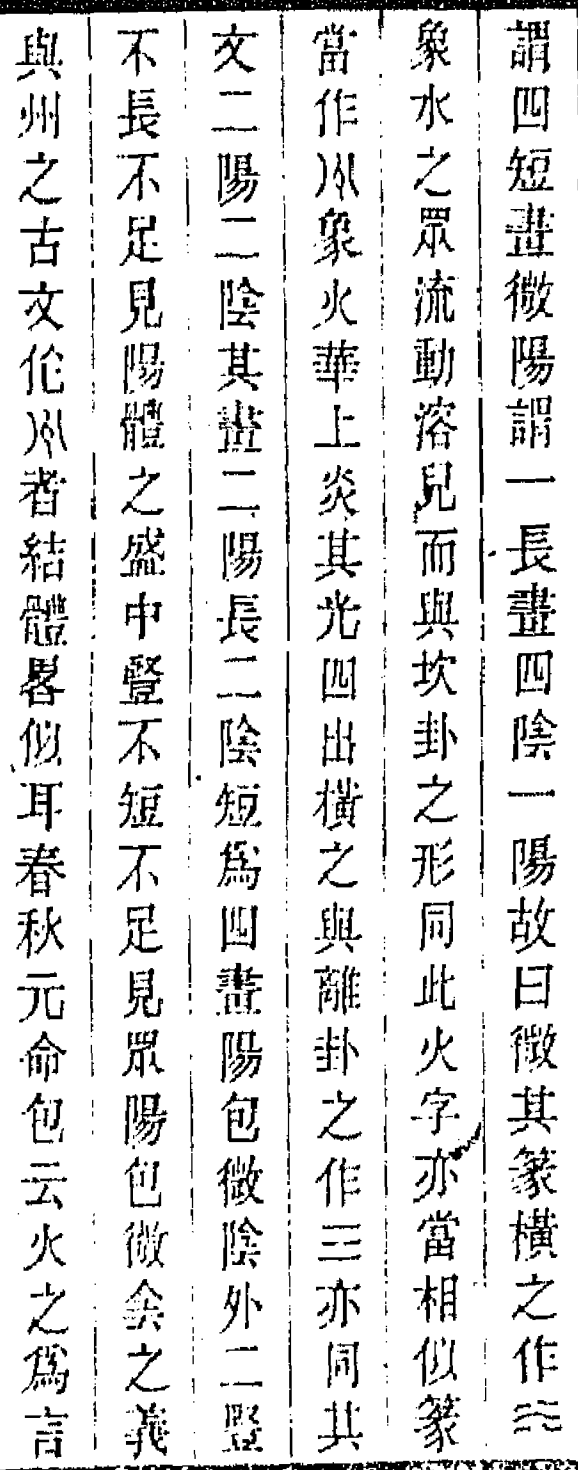 謂四短畫微陽謂一長畫四陰一陽故曰微其篆橫之作
象水之眾流動溶皃而與坎卦之形同此火字亦當相似篆
當作象火華上炎其光四出橫之與離卦之作☲亦同其
文二陽二陰其畫二陽長二陰短爲四畫陽包微陰外二豎
不長不足見陽體之盛中豎不短不足見眾陽包微侌之義
與州之古文作者結體畧似耳春秋元命包云火之爲言